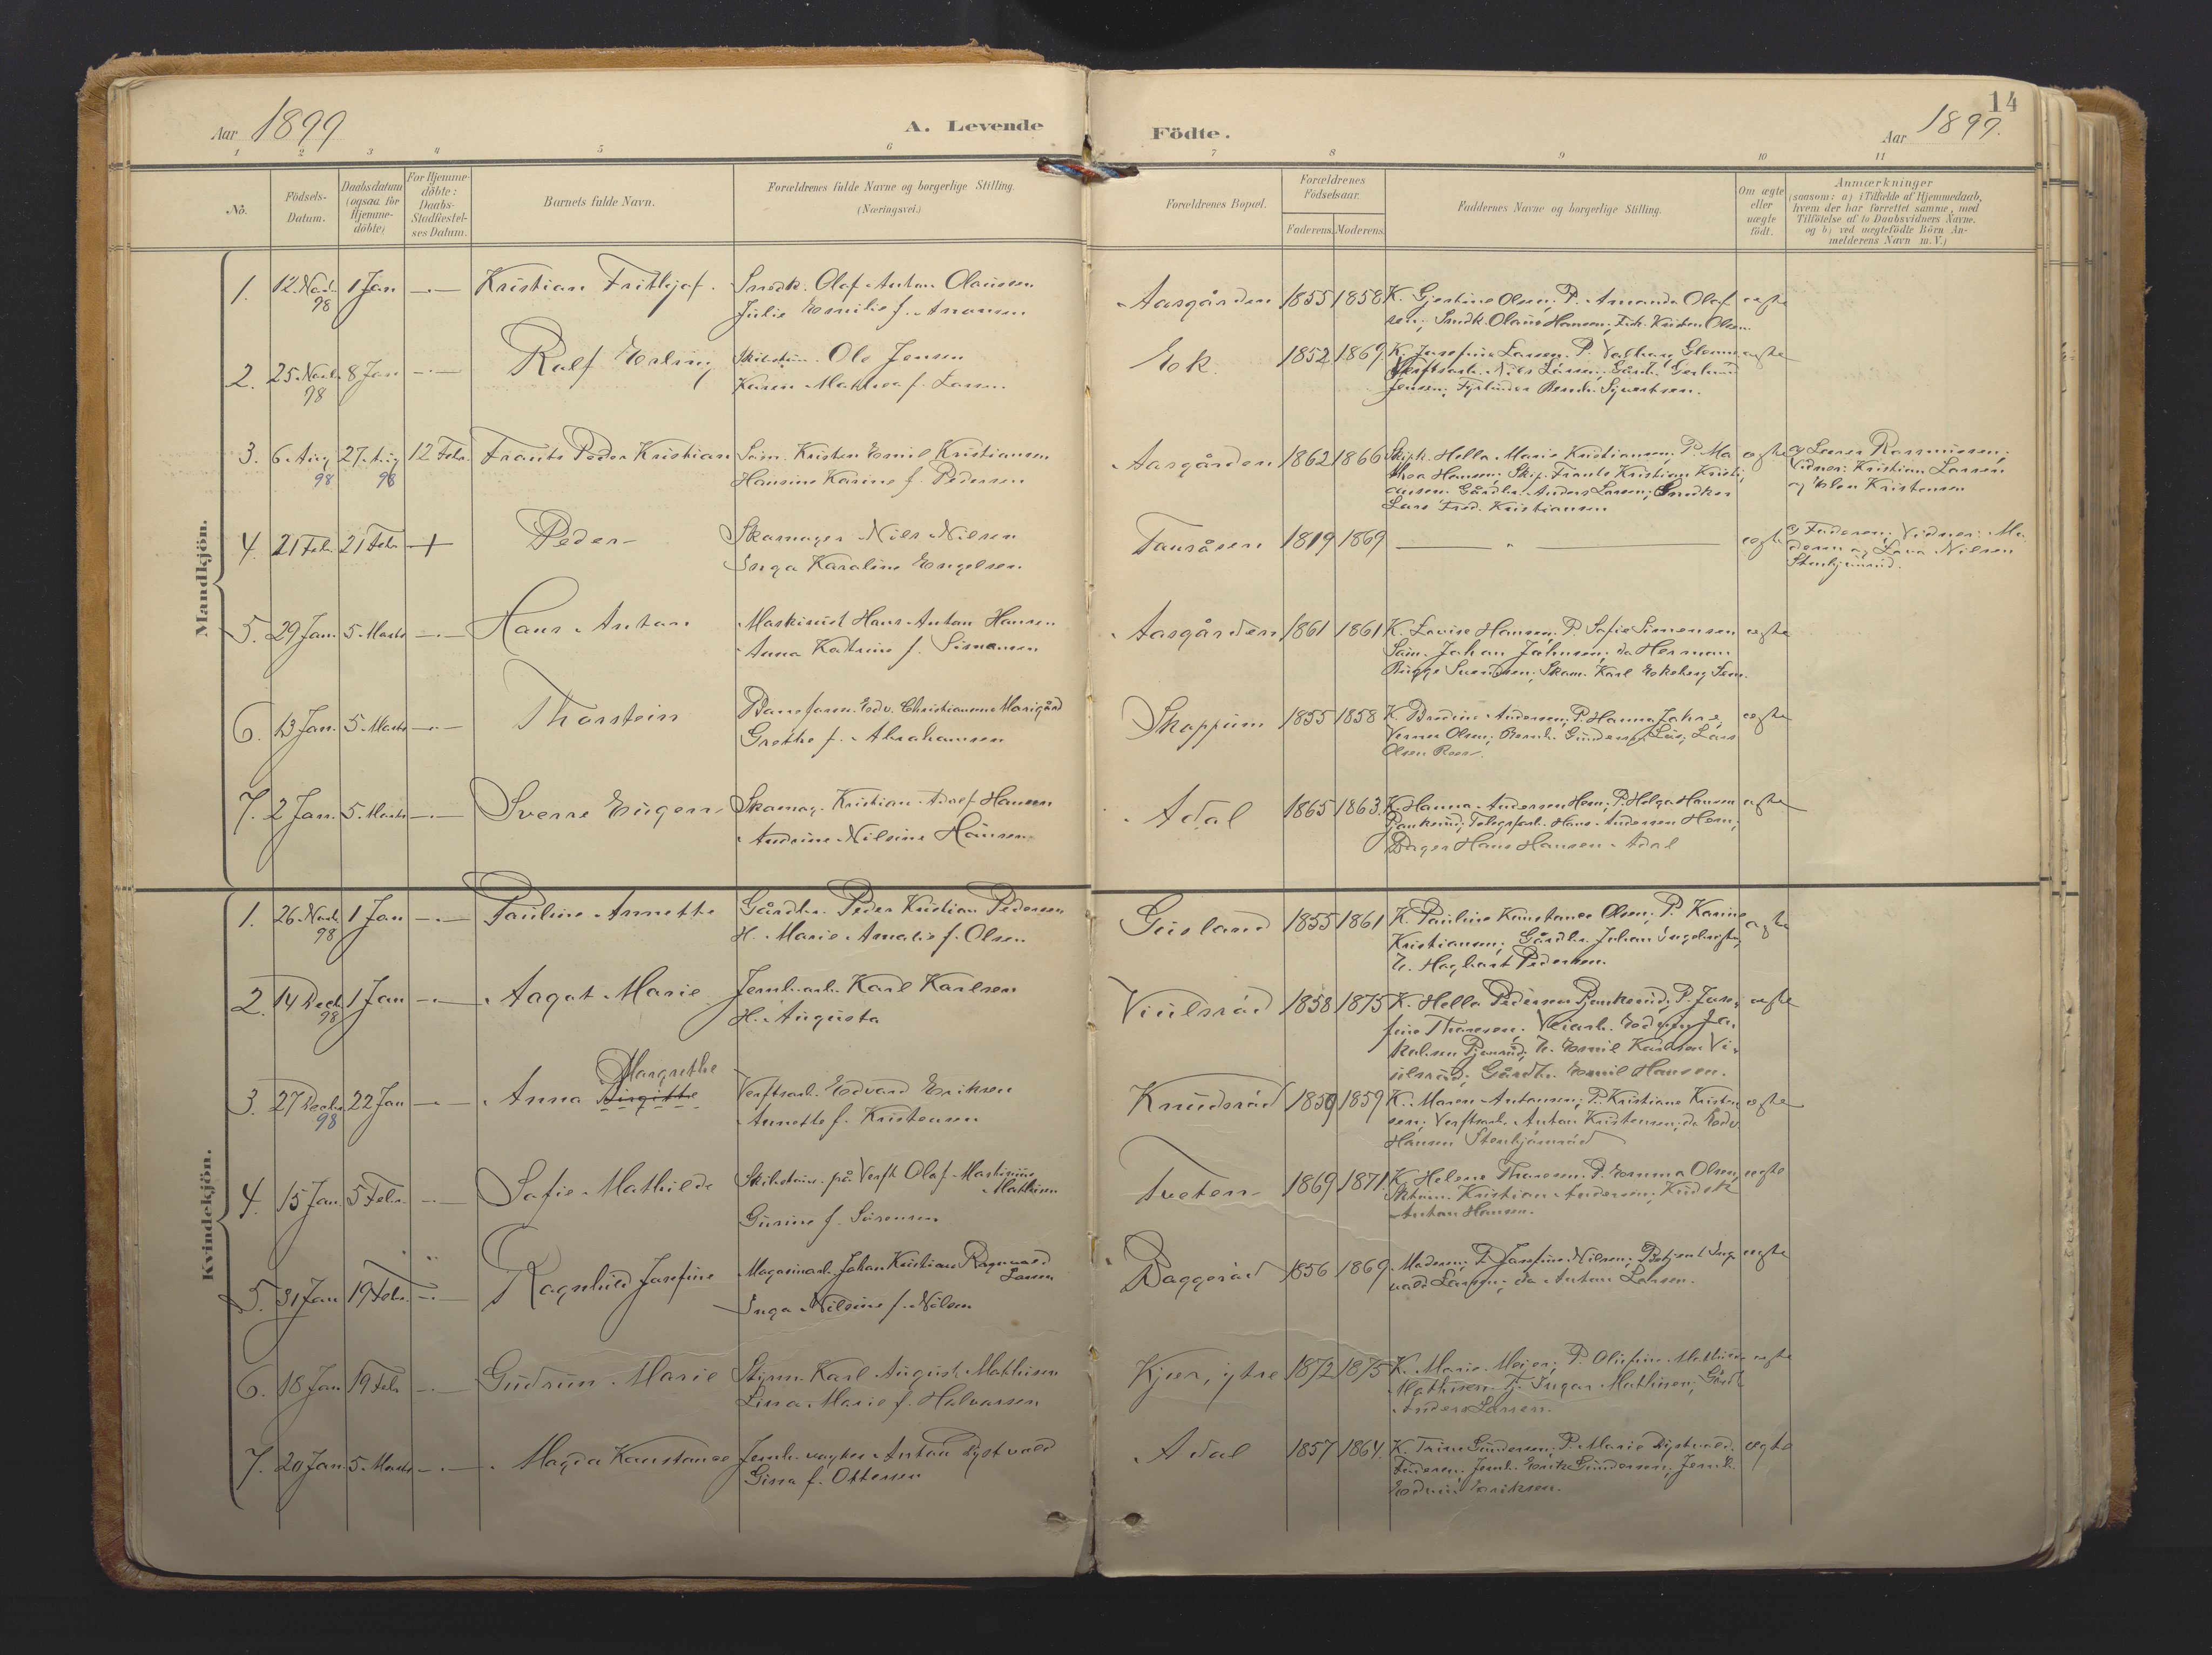 14
Aar 1899
A. Levende
Födte.
Aar 1899.
1 2 3 4 5 6 7 8 9 10 11
No.
Födsels-
Datum.
Daabsdatum
(ogsaa for
Hjemme-
döbte)
For Hjemme-
döbte:
Daabs-
Stadfæstel-
ses Datum.
Barnets fulde Navn.
Forældrenes fulde Navne og borgerlige Stilling.
(Næringsvei.)
Forældrenes Bopæl.
Forældrenes
Födselsaar.
Faderens. Moderens.
Faddernes Navne og borgerlige Stilling.
Om ægte
eller
uægte
födt.
Anmærkninger
(saasom: a) i Tilfælde af Hjemmedaab,
hvem der har forrettet samme, med
Tilföielse af to Daabsvidners Navne.
og b) ved uægtefödte Börn An-
melderens Navn m. V.)
Mandkjön.
1. 12. Novb. 98 1 Jan Kristian Frithjof. Snedk. Olaf Anton Olausen
Julie Emilie f. Amonsen
Aasgården 1855 1858 K. Gjertine Olsen; P. Amanda Olaf
sen; Snedk. Olaus Hansen; Kristen Olsen.
ægte
2. 25 Novb. 98 8 Jan Ralf Erling Ole Jensen
Karen Mathea f. Larsen
Eok. 1852 1869 K. Josefine Larsen. P.
Verftsarb. Nils Larsen; Gårdb.
Jensen; Fyrbinder Bernh. Syvertsen.
ægte
3. 6 Aug 98 27 Aug 98 12 Febr. Frants Peder Kristian Søm. Kristen Emil Kristiansen
Hansine Karine f. Pedersen
Aasgården 1862 1866 Hella Marie Kristiansen; P. Ma
thea Hansen; Skip. Frants Kristian Kristi,
ansen. Gårdbr. Anders Larsen; Snedker
Lars Fred. Kristiansen
ægte
a) Lærer Rasmussen.
Vidner: Kristian Larsen
og Kristensen
4. 21 Feb. 21 Febr + Peder Skomager Nils Nilsen
Inga Karoline Engelsen
Tausåsen 1819 1869 "
ægte
a) Faderen; Vidner: Mo
deren og Lava Nilsen
5. 29 Jan. 5. Marts Hans Anton Maskinist Hans Anton Hansen
Anna Katrine f. Simonsen
Aasgården 1861 1861 K. Lovise Hansen; P. Sofie Simonsen
Søm. Johan Johnsen; do Herman
Bugge Svendsen; Skom. Karl Ekeberg Sem.
ægte
6. 13 Jan. 5 Marts Thorstein Edv. Christiansen
Grethe f. Abrahamsen
Skoppum 1855 1858 K. Andersen; P. Hanna
Verner Olsen; Bernh. Gundersen; Lars
Olsen
ægte
7. 2 Jan. 5. Marts Sverre Eugen Skomag. Kristian Adolf Hansen
Andrine Nilsine Hansen
Adal 1865 1863 K. Hanna Andersen Hem; P. Helga Hansen
Telegrfarb. Hans Andersen Hem;
Bager Hans Hansen Adal
ægte
Kvindekjön.
1. 26 Novb. 98 1 Jan Pauline Annette Gårdbr. Peder Kristian Pedersen
H. Marie Amalie f. Olsen
Gusland 1855 1861 K. Pauline Konstanse Olsen; P. Karine
Kristiansen; Gårdbr. Johan
U. Hagbart Pedersen.
ægte
2. 14 Decb. 98 1 Jan Aagot Marie Jernb. arb. Karl Karlsen
H. Augusta
Viulsrød 1858 1875 K. Hella Pedersen P. Jose,
fine Thoresen; Veiarb.
U. Emil Karlsen Vi-
ulsrød; Gårdb. Emil Hansen.
ægte
3. 27 Decbr. 98 22 Jan Anna Birgitte Margrethe Verftsarb. Edvard Eriksen
Annette f. Kristensen
Knudsrød 1859 1859 K. Maren Antonsen; P. Kristiane Kristen
sen; Verftsarb. Anton Kristensen; do Edv.
Hansen
ægte
4. 15 Jan. 5 Febr. Sofie Mathilde på Verft Olaf Martinius
Mathisen
Gurine f. Sørensen
Tveten 1869 1871 K. Helene Thoresen; P. Emma Olsen,
Kristian Andersen;
Anton Hansen.
ægte
5. 31 Jan 19 Febr. Ragnhild Josefine Magasinarb. Johan Kristian Ragnvald
Larsen
Inga Nilsine f. Nilsen
Baggerød 1856 1869 Moderen; P. Josefine Nilsen; Ing
vald Larsen; do Anton Larsen.
ægte
6. 18 Jan 19 Febr Gudrun Marie Styrm. Karl August Mathisen
Lina Marie f. Halvorsen
Kjær, ytre 1872 1875 K. Marie Meier; P. Olufine Mathilde
Mathisen. Ingar Mathisen; Gårdb.
Anders Larsen.
ægte
7. 20 Jan. 5. Marts Magda Konstanse Jernb. vogter Anton Dystvold
Gina f. Ottersen
Adal 1857 1864. K. Trine Gundersen; P. Marie Dystvold.
Faderen. Jernb. Gundersen; Jernb.
Edvin Eriksen.
ægte